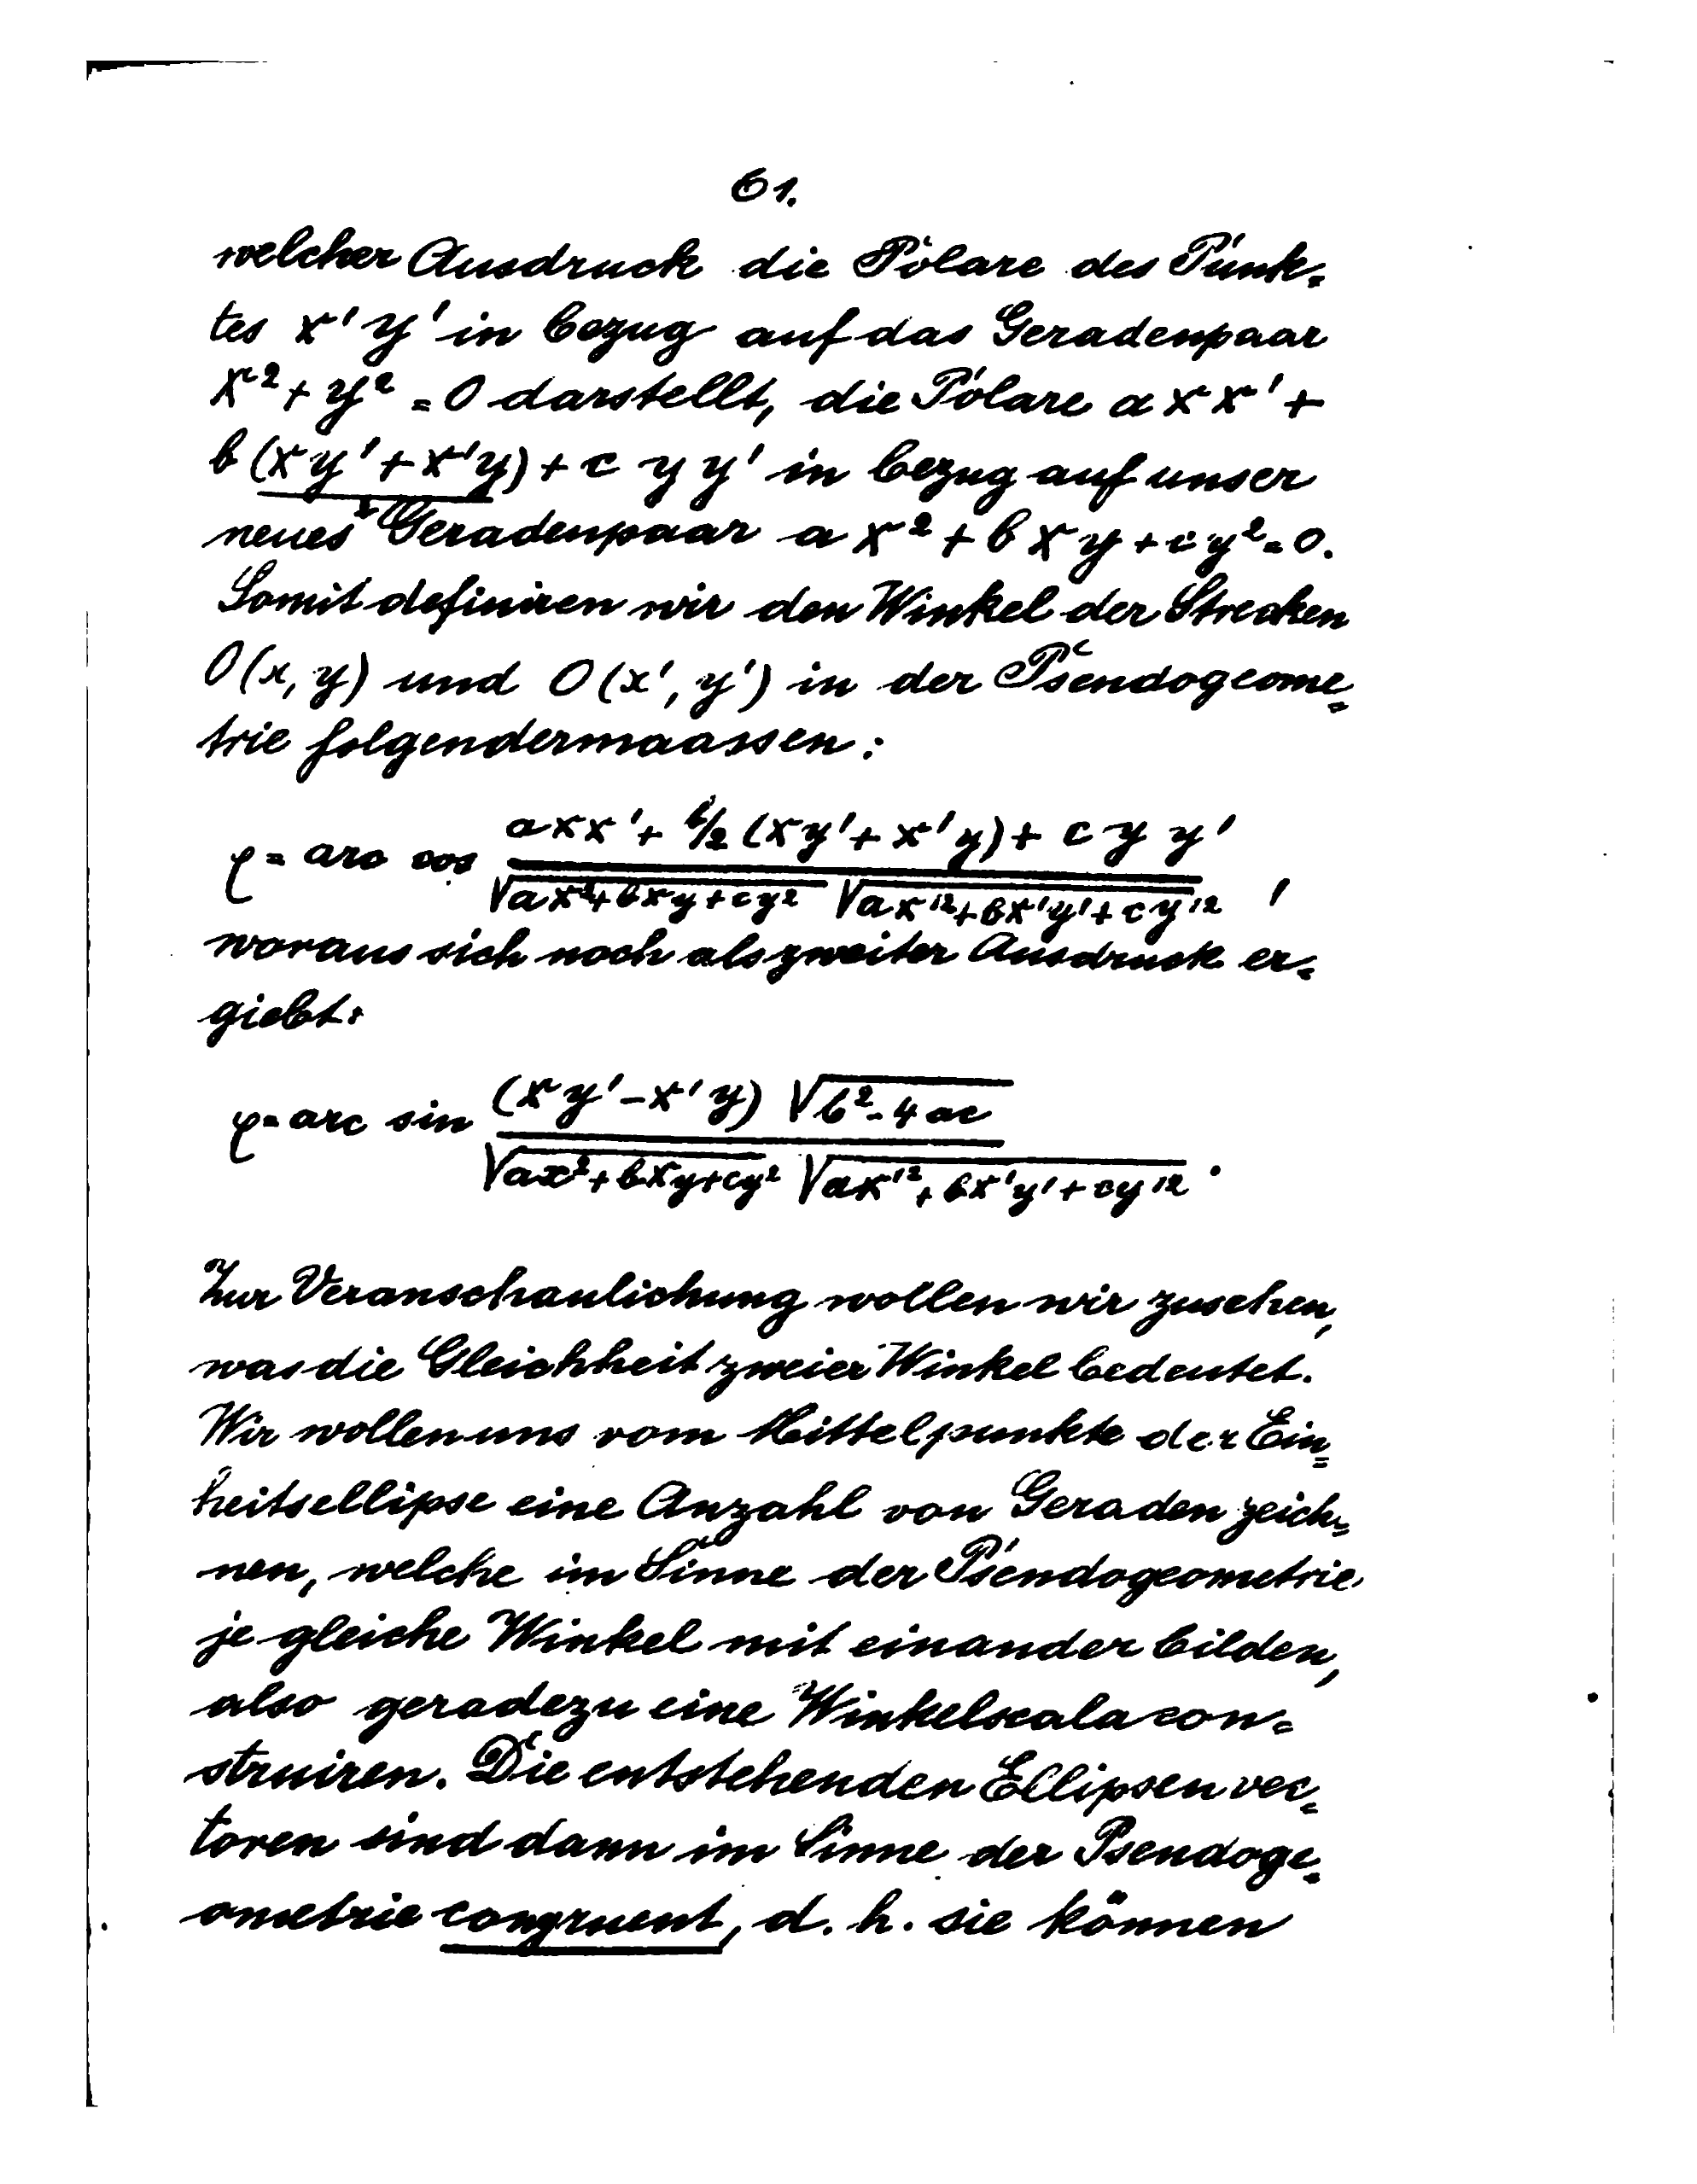 61.
welcher Ausdruck die Polare des Punk-
tes x' y' in bezug auf das Geradenpaar
x² + y² = 0 darstellt, die Polare a x x' +
b (x y' + x' y) + c y y' in bezug auf unser
2
neues Geradenpaar a x² + b x y + c y² = 0.
Somit definiren wir den Winkel der Strecken
O (x, y) und O (x', y') in der Pseudogeome-
trie folgendermaassen:
φ = arc cos (a x x' + b/2 (x y' + x' y) + c y y') / (√(a x² + b x y + c y²) √(a x'² + b x' y' + c y'²)) ,
woraus sich noch als zweiter Ausdruck er-
giebt:
φ = arc sin ((x y' - x' y) √(b² - 4 a c)) / (√(a x² + b x y + c y²) √(a x'² + b x' y' + c y'²)) .
Zur Veranschaulichung wollen wir zusehen,
was die Gleichheit zweier Winkel bedeutet.
Wir wollen uns vom Mittelpunkte der Ein-
heitsellipse eine Anzahl von Geraden zeich-
nen, welche im Sinne der Pseudogeometrie
je gleiche Winkel mit einander bilden,
also geradezu eine Winkelscala con-
struiren. Die entstehenden Ellipsenvec-
toren sind dann im Sinne der Pseudoge-
ometrie congruent, d. h. sie können